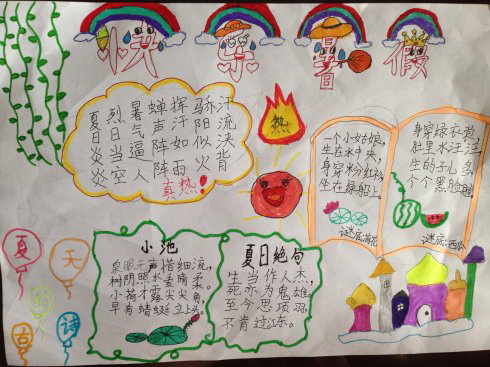 快乐暑假
夏日炎炎
烈日当空
暑气逼人
蝉声阵阵
挥汗如雨
骄阳似火
汗流浃背
真热!
热
一个小姑娘,
生在水中央,
身穿粉红衫,
坐在绿船上。
谜底:荷花
身穿绿衣裳,
肚里水汪汪,
生的子儿多,
个个黑脸膛。
谜底:西瓜
夏天
古诗
小池
泉眼无声惜细流,
树阴照水爱晴柔。
小荷才露尖尖角,
早有蜻蜓立上头。
夏日绝句
生当作人杰,
死亦为鬼雄。
至今思项羽,
不肯过江东。